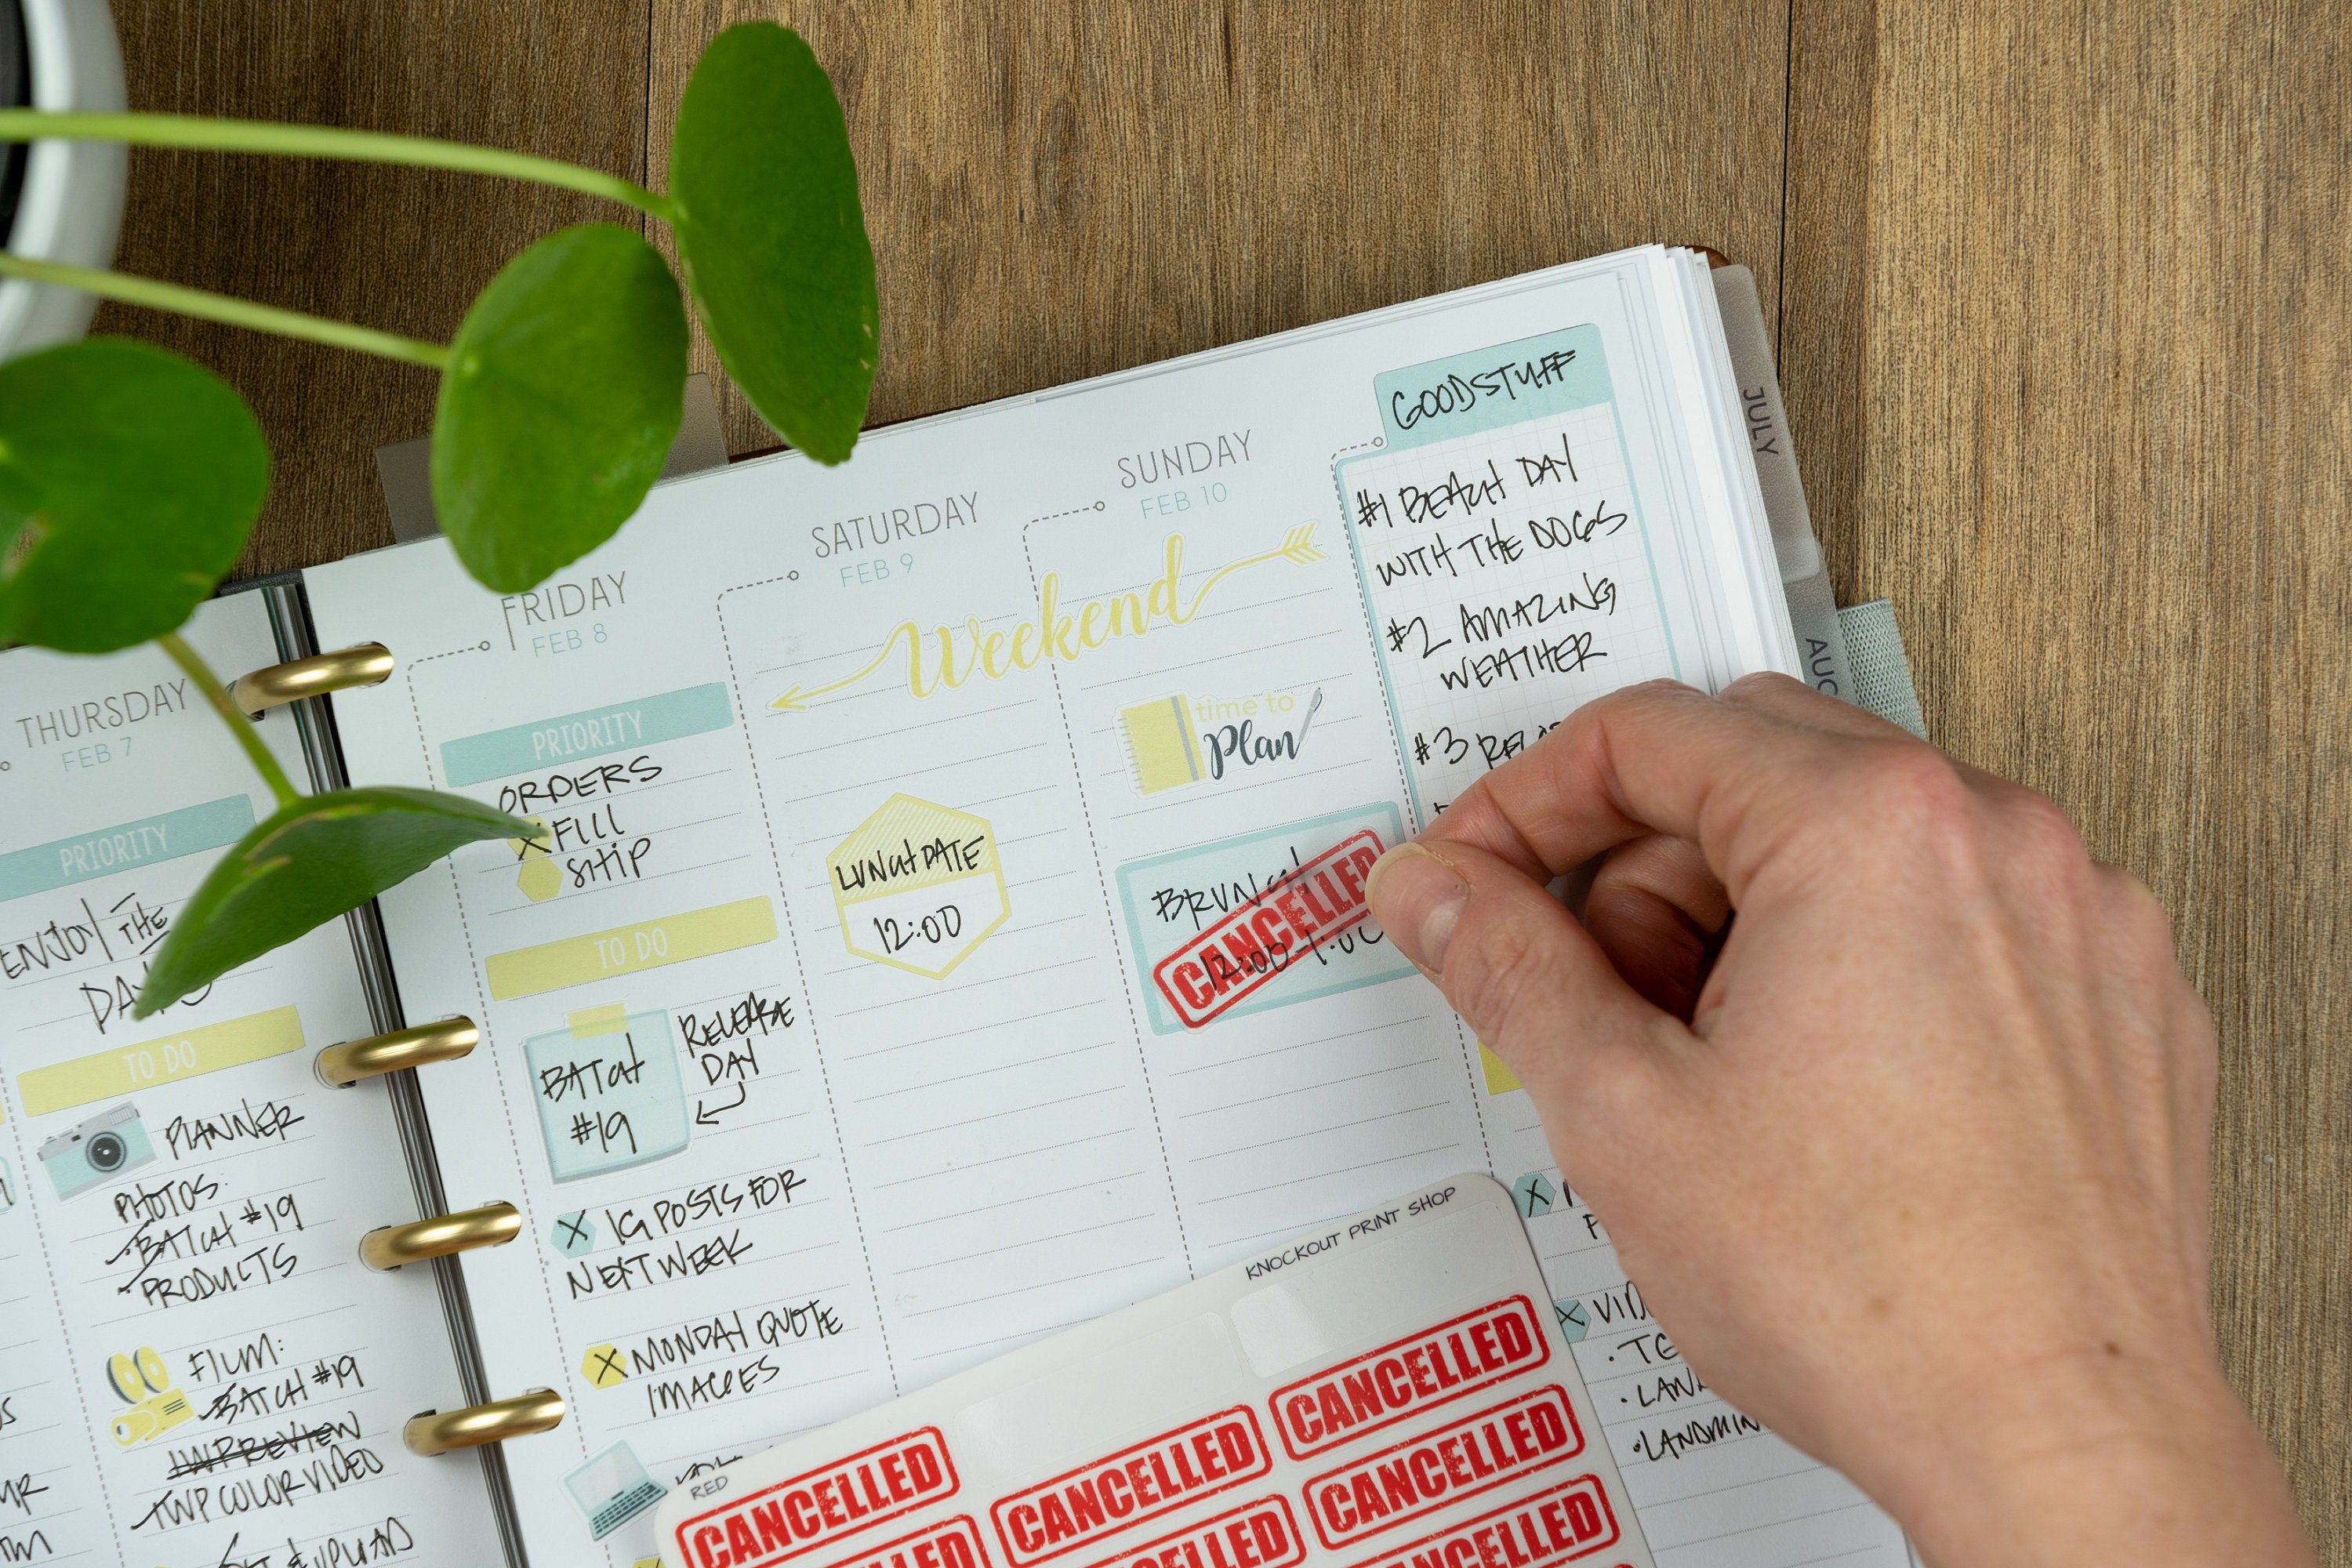 THURSDAY
FEB 7
PRIORITY
ENJOY THE
TO DO
PLANNER
PHOTOS:
BATCH #19
PRODUCTS
FILM:
BATCH #19
TWP COLOR VIDEO
FRIDAY
FEB 8
PRIORITY
ORDERS
X FILL
SHIP
TO DO
BATCH
#19
RELEASE
DAY
X IG POSTS FOR
NEXT WEEK
X MONDAY QUOTE
IMAGES
SATURDAY
FEB 9
Weekend
LUNCH DATE
12:00
SUNDAY
FEB 10
time to
Plan
BRUNCH
CANCELLED
12:00-1:00
GOOD STUFF
#1 BEACH DAY
WITH THE DOGS
#2 AMAZING
WEATHER
#3
X
X
JULY
AUG
KNOCKOUT PRINT SHOP
RED
CANCELLED
CANCELLED
CANCELLED
CANCELLED